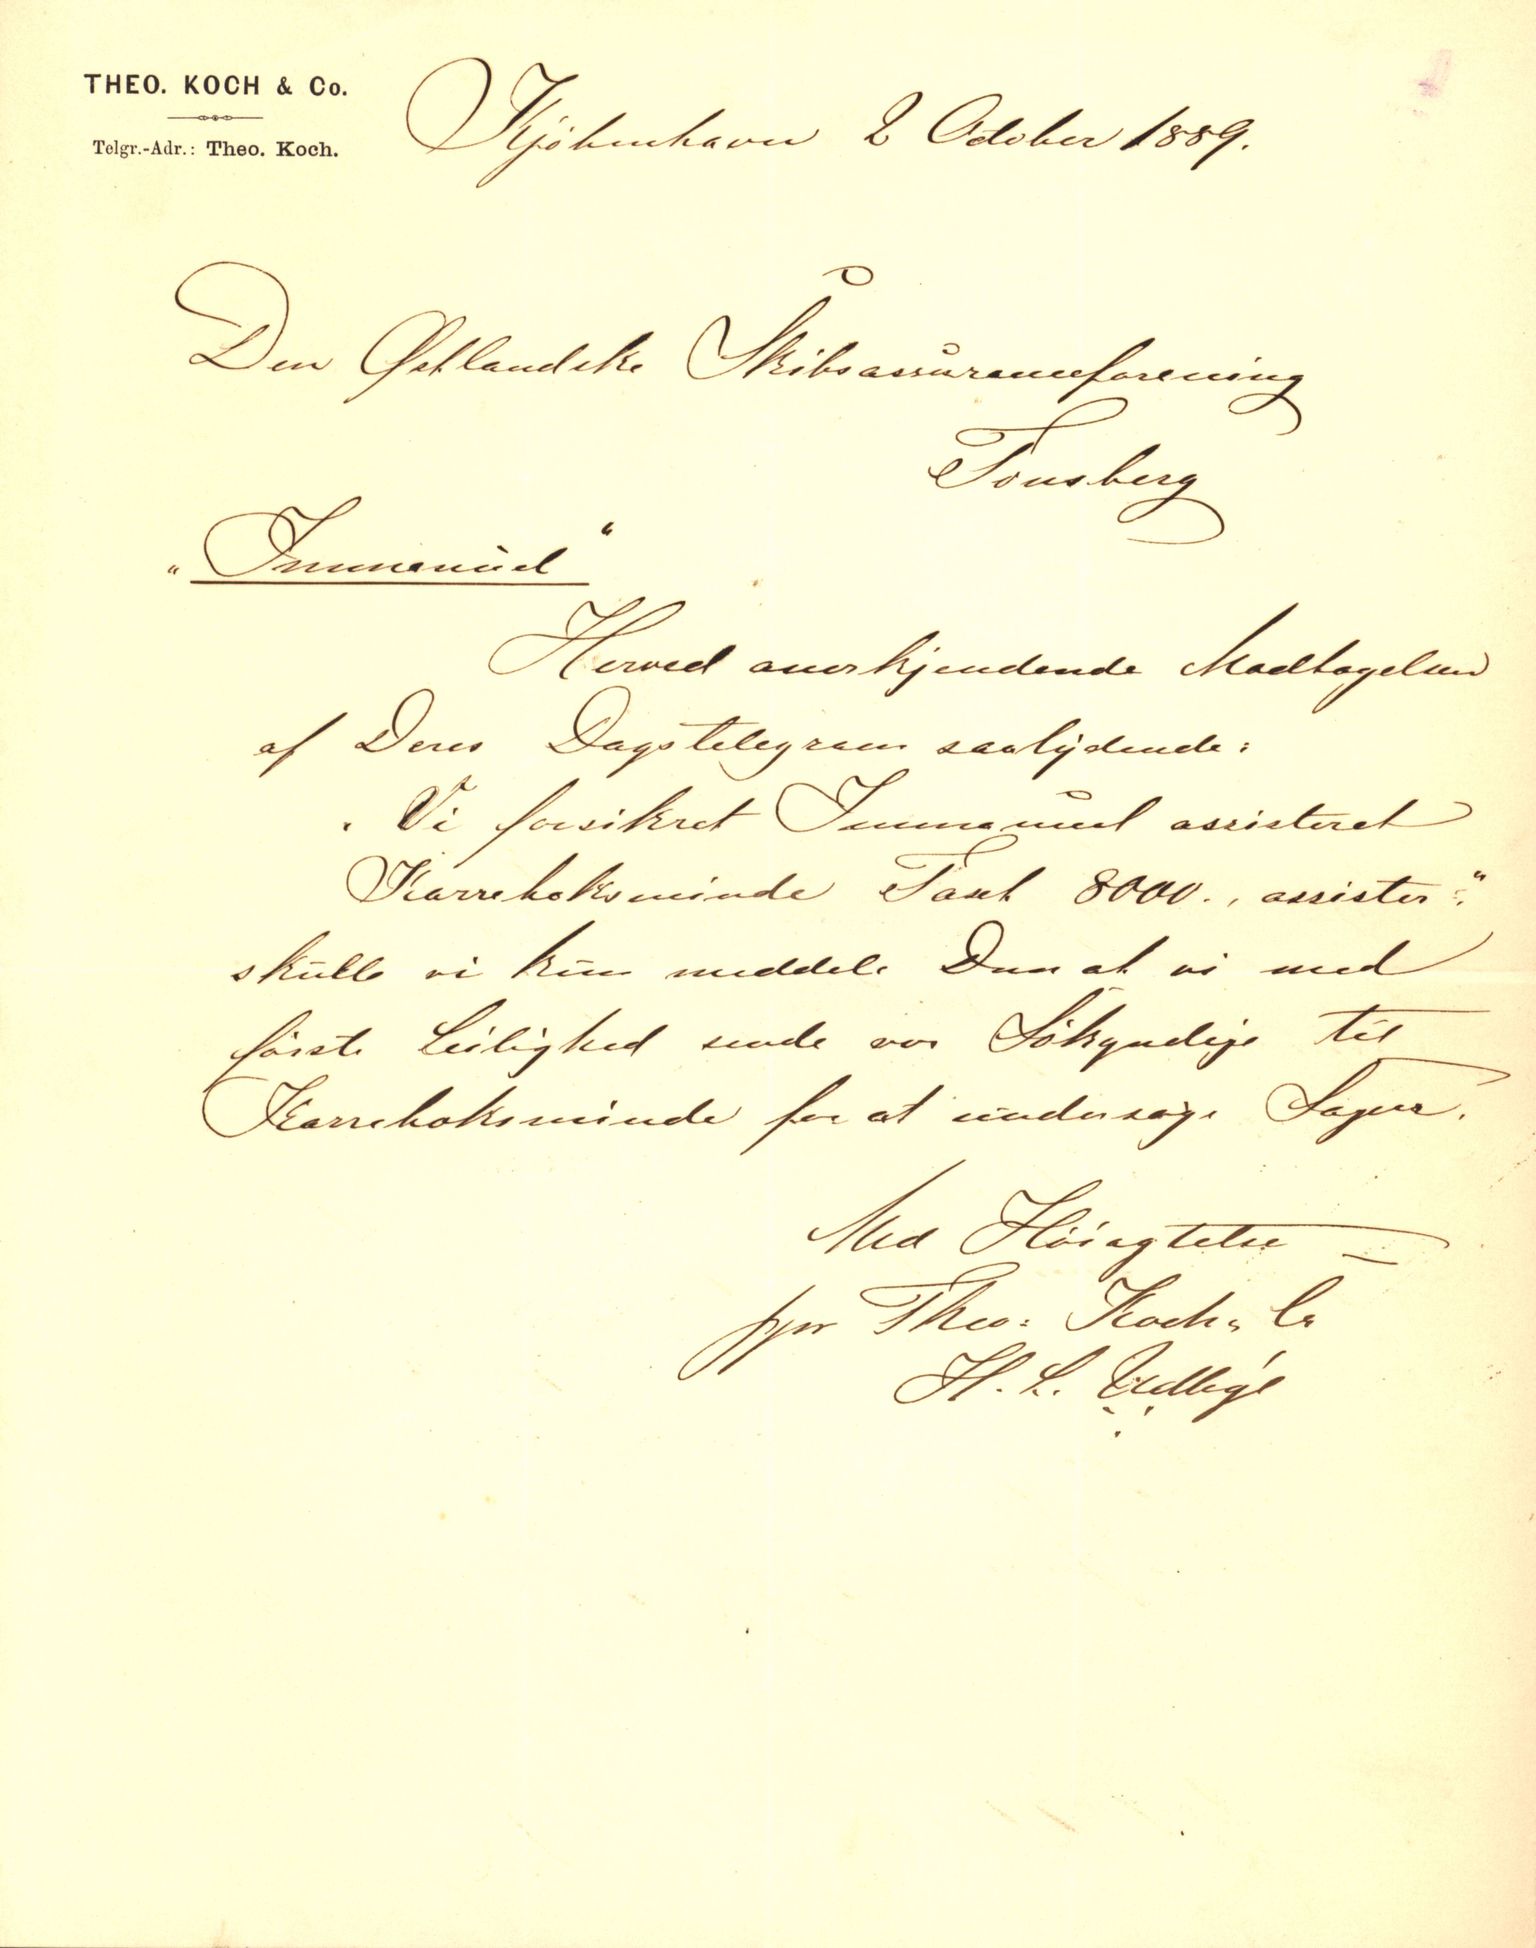 THEO. KOCH & Co.
Telgr.-Adr.: Theo. Koch.
Kjöbenhavn 2 October 1889.
Den Østlandske Skibsassuranceforening
Tönsberg
"Immanuel"
Herved anerkjendende Modtagelsen
af Deres Dagstelegram saalydende:
"Vi forsikret Immanuel assisteret
Karreboksminde Taxt 8000., assister".
skulle vi kun meddele Dem at vi med
förste Leilighed sende vor Sökyndige til
Karreboksminde for at undersöge Sagen.
Med Höiagtelse
ppr Theo: Koch & Co
H. L.